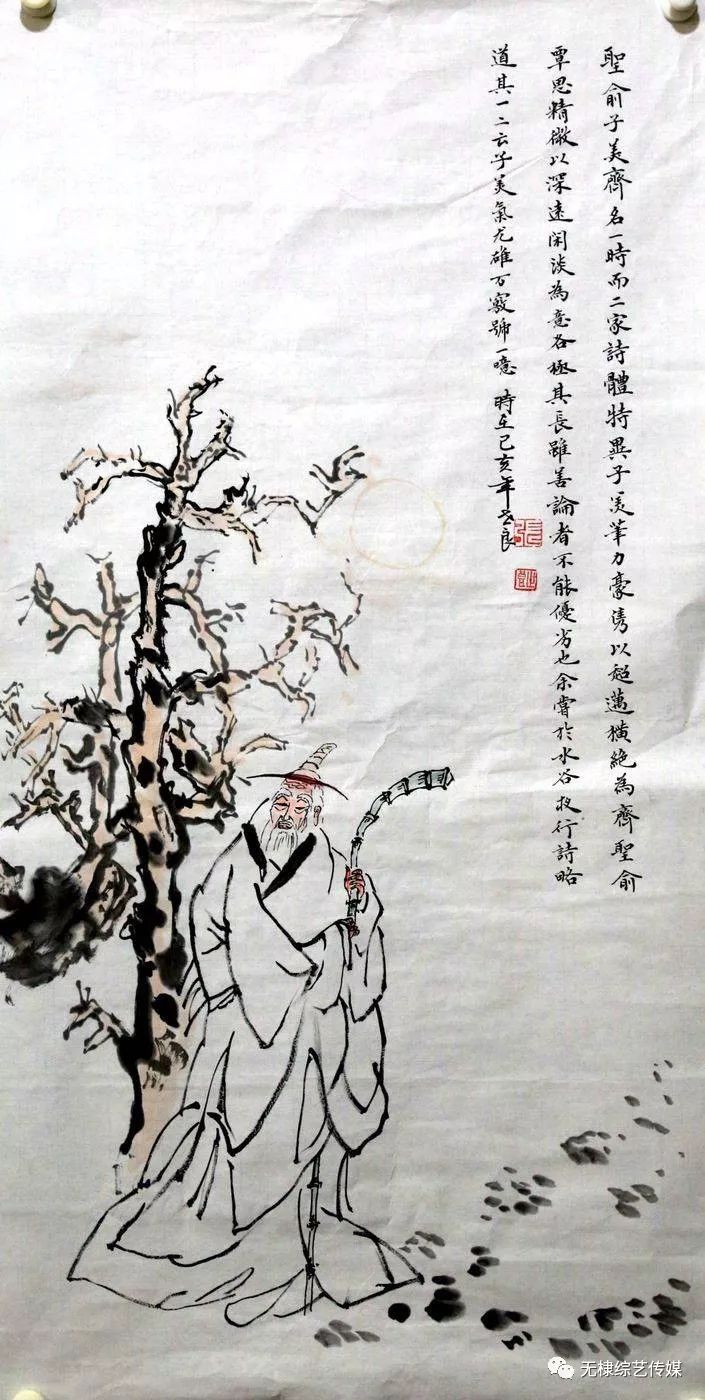 聖俞子美齊名一時而二家詩體特異子美筆力豪雋以超邁橫絕為齊聖俞
覃思精微以深遠閑淡為意各極其長雖善論者不能優劣也余嘗於水谷夜行詩略
道其一二云子美氣尤雄万竅號一噫 時在己亥年良
无棣综艺传媒